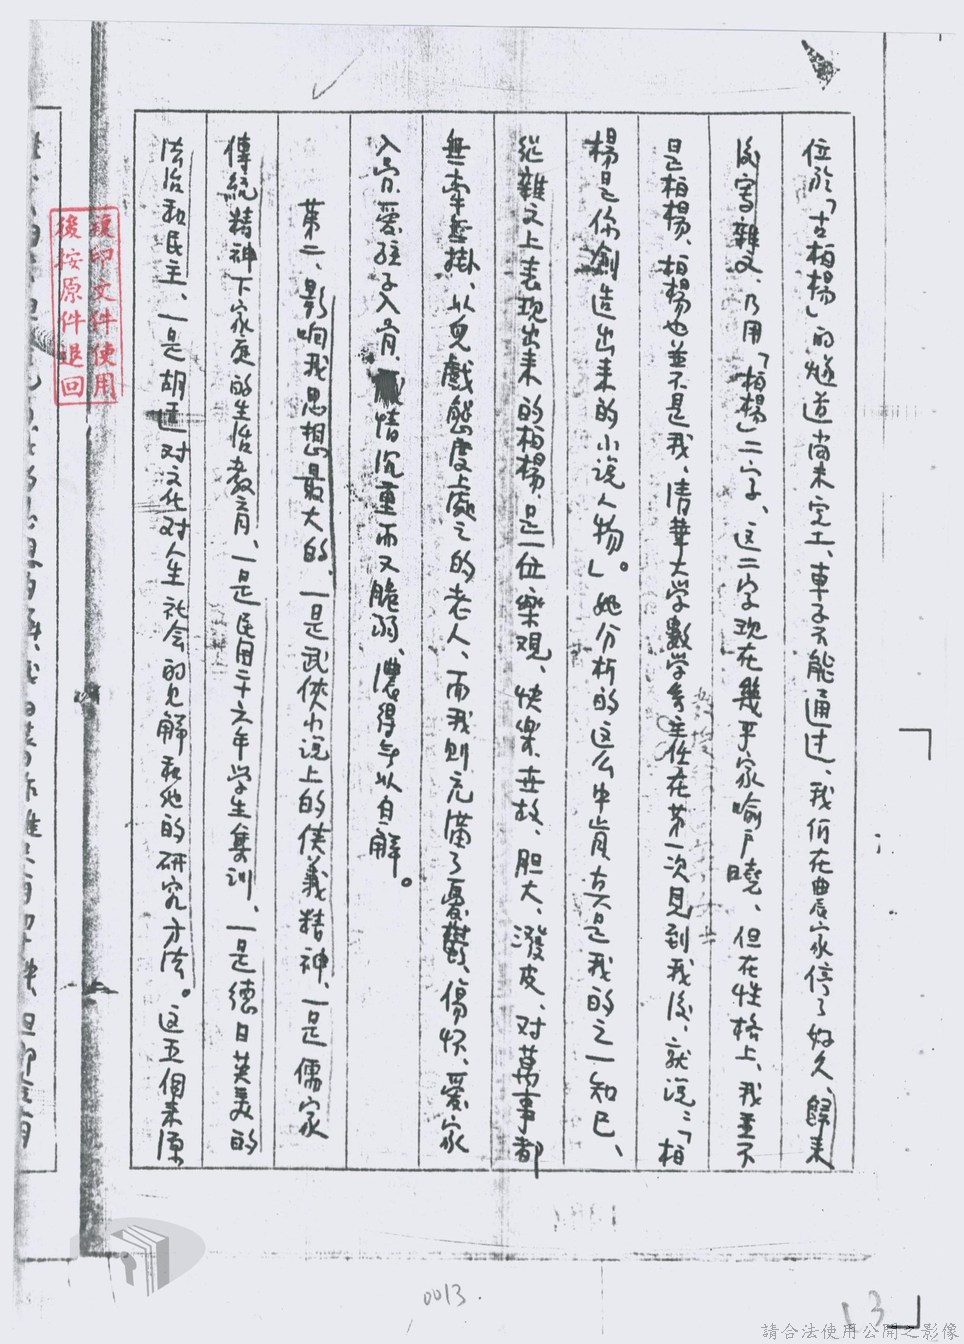 位於「古柏楊」的燧道尚未完工、車子不能通过、我们在農家停了好久、歸来
後寫雜文、乃用「柏楊」二字、这二字现在幾乎家喻户曉、但在性格上、我並不
是柏楊、柏楊也並不是我、清華大学數学系主任在第一次見到我後、就说：「柏
楊是你創造出来的小说人物」。她分析的这么中肯、真是我的之一知己、
從雜文上表现出来的柏楊、是一位樂观、快樂、世故、胆大、潑皮、对萬事都
無牽無掛、以兒戲態度上處之的老人、而我則充滿了憂鬱、傷怀、愛家
入骨、愛孩子入骨、感情沉重而又脆弱、濃得難以自解。
第二、影响我思想最大的、一是武俠小说上的俠義精神、一是儒家
傳統精神下家庭的生活教育、一是民国二十六年学生集训、一是德日英美的
法治和民主、一是胡適对文化对人生社会的见解和他的研究方法。这五個来源
複印文件使用
後按原件退回
0013.
13
請合法使用公開之影像